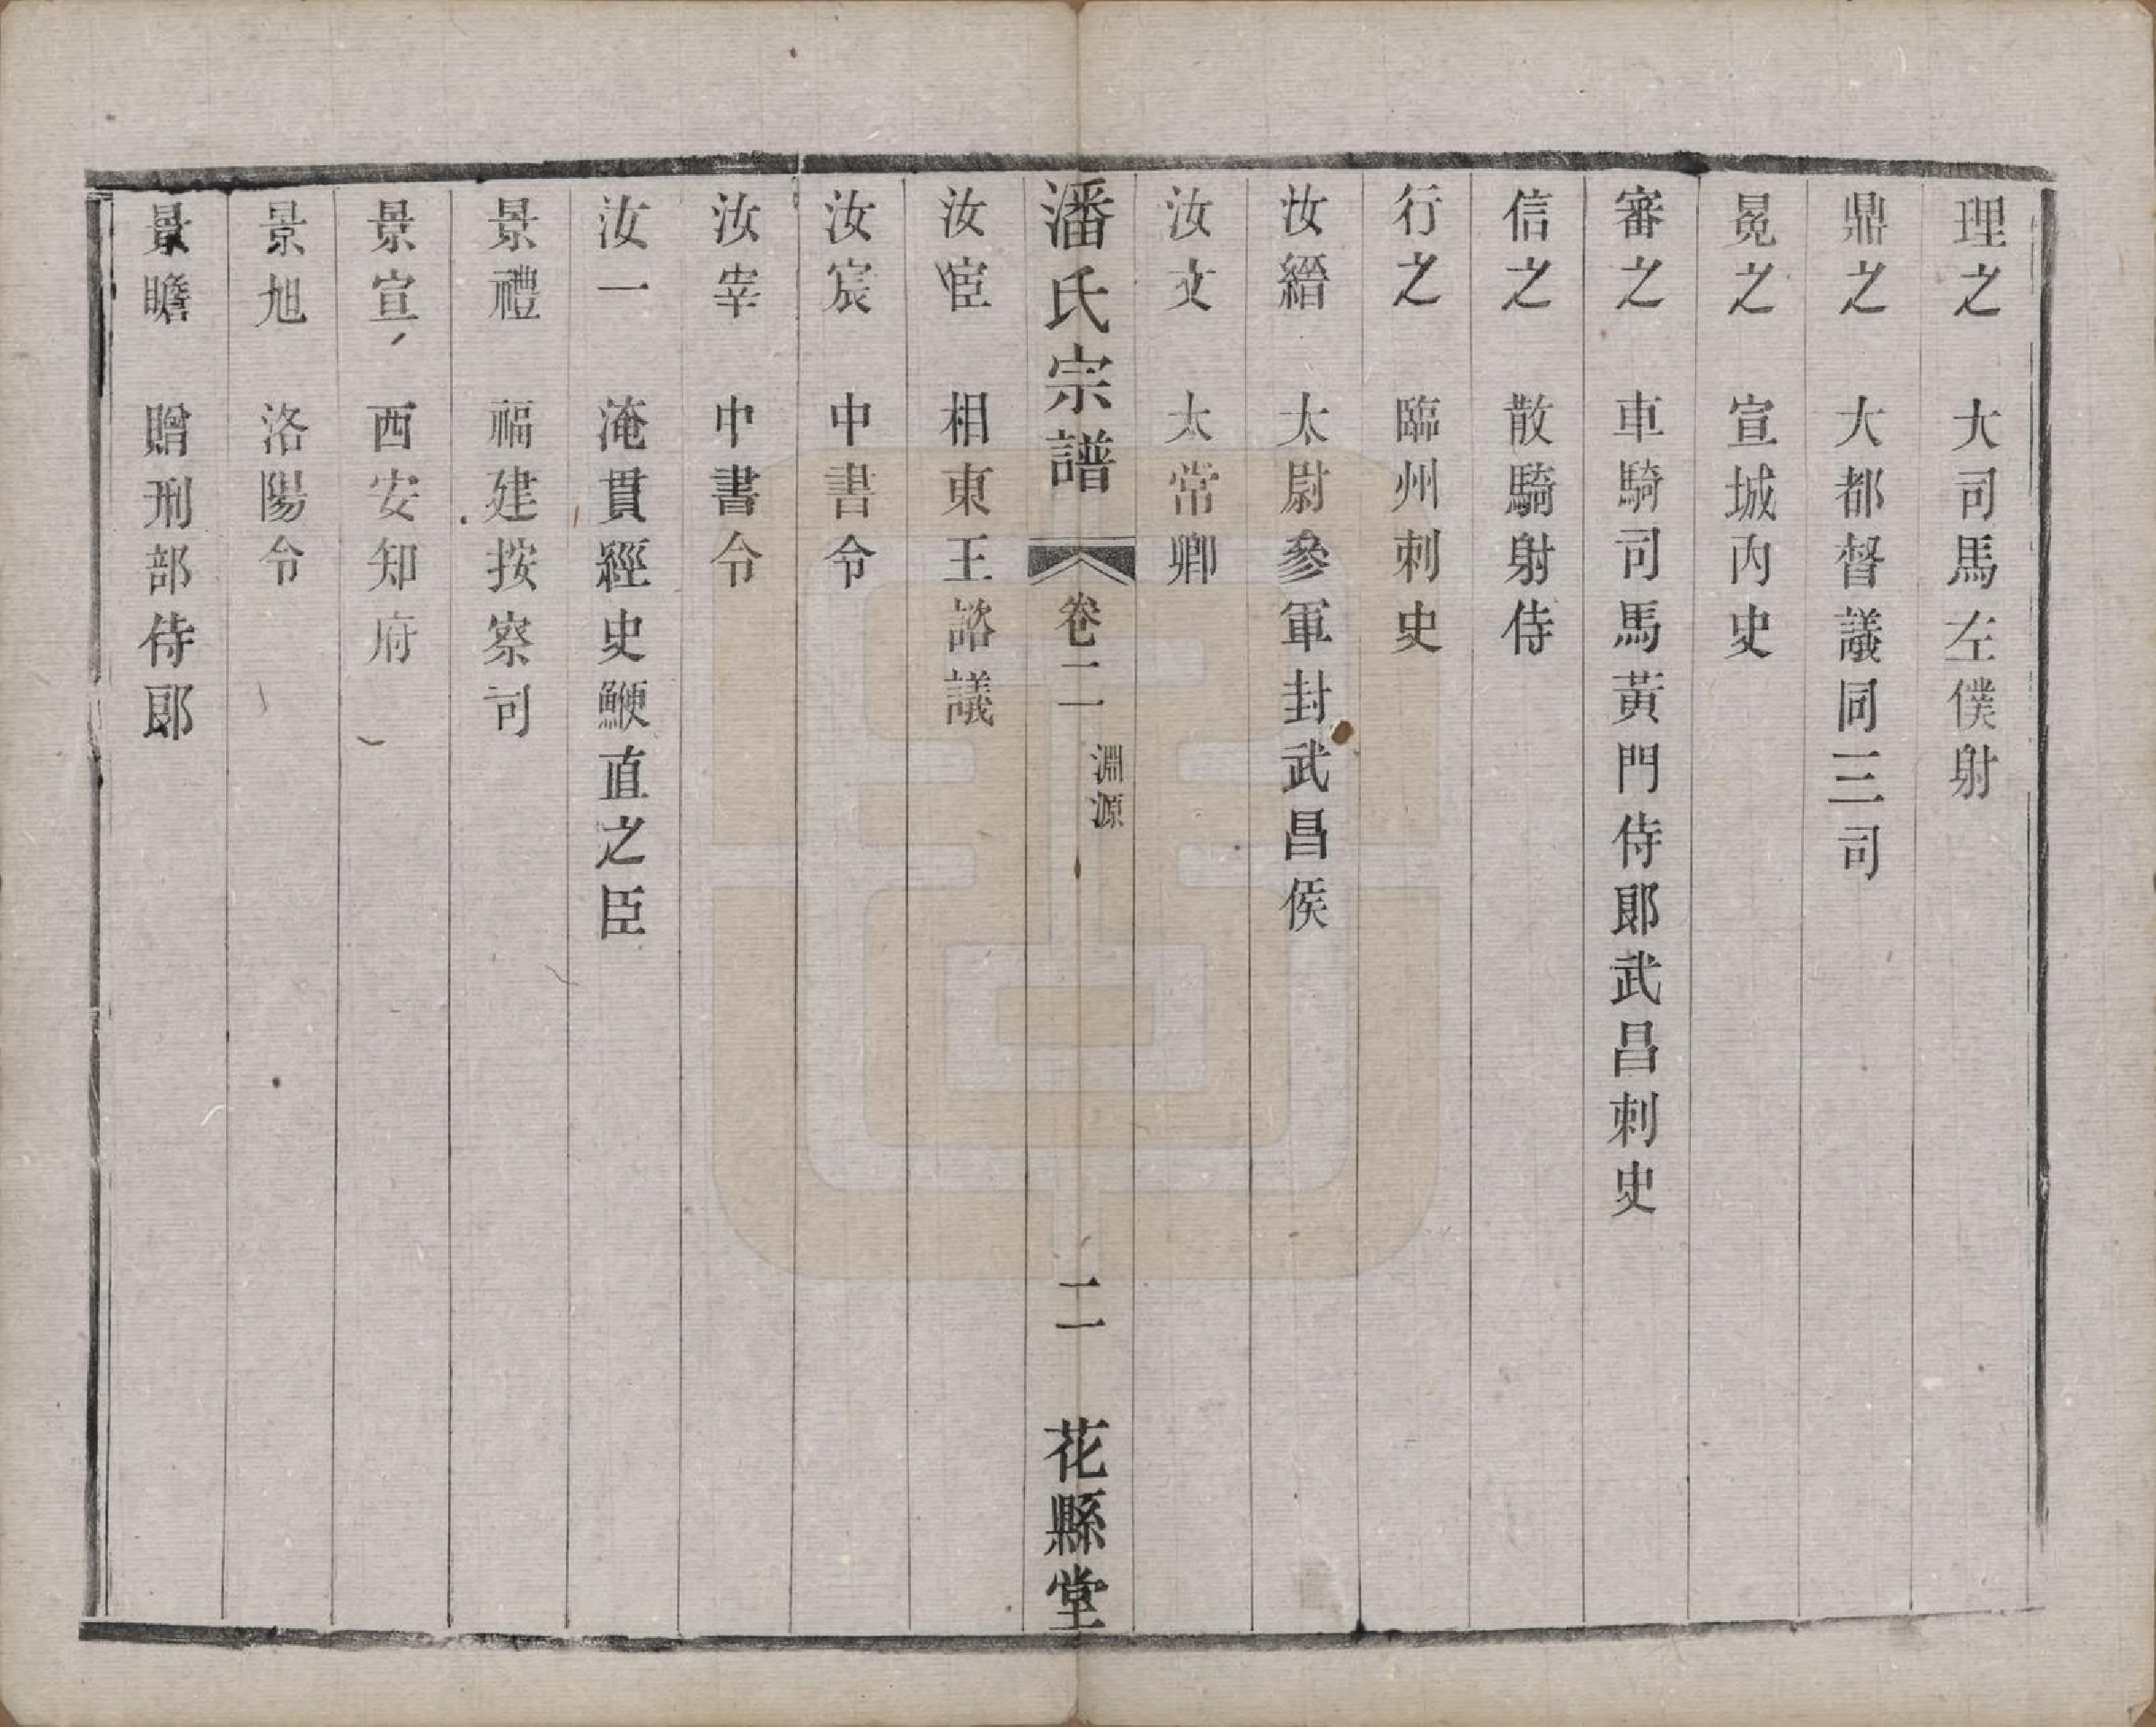 理之　大司馬左僕射
鼎之　大都督議同三司
冕之　宣城內史
審之　車騎司馬黃門侍郎武昌刺史
信之　散騎射侍
行之　臨州刺史
汝縉　太尉參軍封武昌侯
汝文　太常卿
潘氏宗譜　卷二　淵源　二　花縣堂
汝宦　相東王諮議
汝宸　中書令
汝宰　中書令
汝一　淹貫經史鯁直之臣
景禮　福建按察司
景宣　西安知府
景旭　洛陽令
景瞻　贈刑部侍郎